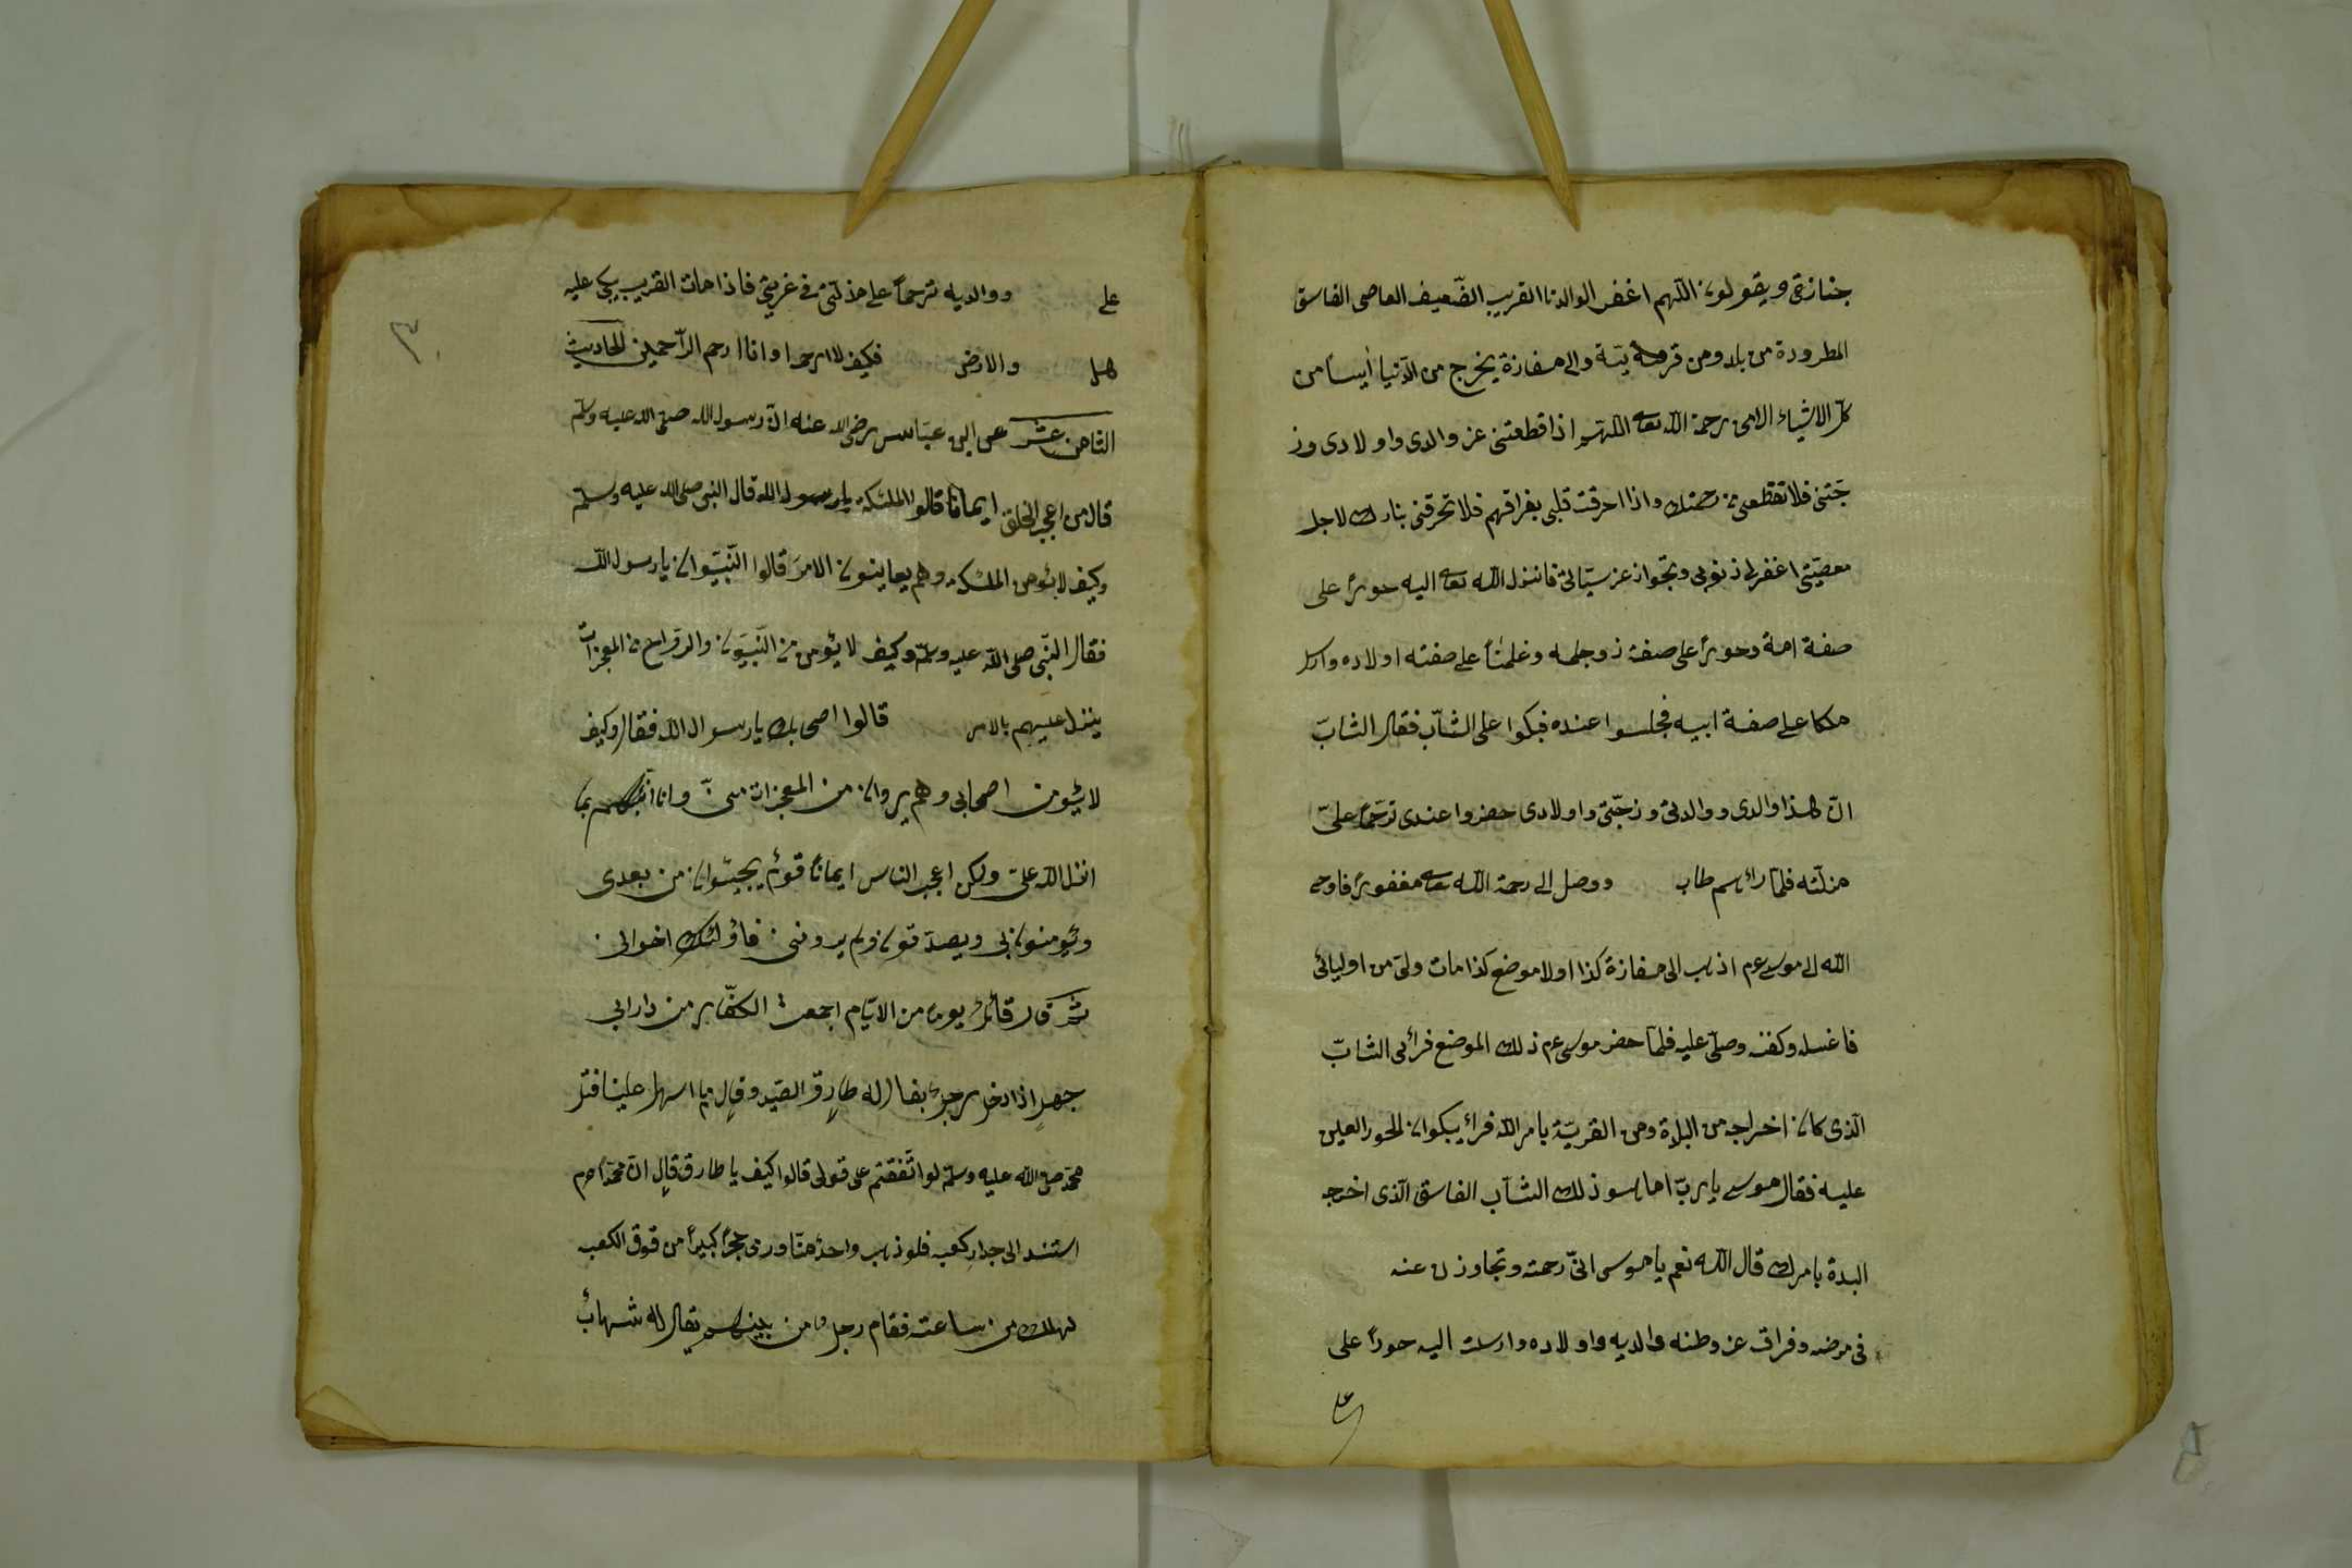 جنازتى ويقولون اللّهم اغفر الوالدنا القريب الضّعيف العاصى الفاسق
المطرودة من بلد ومن قرية والى مفازة يخرج من الدّنيا أيسا من
كلّ الاشياء الا من رحمة اللّه تعا اللّهم اذا قطعتنى عن والدى واولادى وز
جتى فلا تقطعنى من رحمتك واذا احرقت قلبى بفراقهم فلا تحرقنى بنارك لاجل
معصيتى اغفر لى ذنوبى وتجواز عن سيّاتى فانزل اللّه تعا اليه حورًا على
صفة امة وحورًا على صفة زوجله وغلمنًا على صفته اولاده وارسل
ملكا على صفة ابيه فجلسوا عنده فبكوا على الشّاب فقال الشابّ
انّ هذا والدى ووالدتى وزجّتى واولادى حضروا عندى ترحّما علىّ
منلّته فلمّا راٸهم طاب ووصل الى رحمة اللّه تعا مغفورًا فاوحى
اللّه الى موسى عم اذهب الى مفازة كذا اولا موضع كذا مات ولىّ من اوليائى
فاغسله وكفنه وصلّ عليه فلمّا حضر موسى عم ذلك الموضع فرأى الشابّ
الّذى كان اخراجه من البلاة ومن القريّة بامر اللّه فرأ يبكوان الحور العين
عليه فقال موسى يا ربّ اما هو ذلك الشاب الفاسق الّذى اخرجه
البدة بامرك قال اللّه نعم يا موسى انىّ رحمته وتجاوزن عنه
فى مرضه وفراق عن وطنه والديه واولاده وارسلت اليه حورًا على
على
على ووالديه ترحمًا على مذلّتى فى غربتى فاذا مات القريب يبكى عليه
هل والارض فكيف لا ارحم وانا ارحم الرّاحمين الحاديث
الثامن عشر عن ابن عبّاس رضى الله عنه انّ رسول الله صلى الله عليه وسلّم
قال من اعجب الخلق ايمانًا قالوا الملئكة يا رسول الله قال النبى صلى الله عليه وسلّم
وكيف لا يؤمن الملئكة وهم يعاينون الامر قالوا النّبيّوان يا رسول اللّه
فقال النّبى صلى اللّه عليه وسلّم وكيف لا يؤمن من النّبيّون والروح من المعجزات
ينزل عليهم بالامر قالوا اصحابك يا رسوال اللّه فقال وكيف
لا يؤمن اصحابى وهم يروان من المعجزات منى وانا انبئهم بما
انزل اللّه علىّ ولكن اعجب الناس ايمانًا قومٌ يجيئوان من بعدى
ويؤمنون بى ويصدّقون ولم يرونى فاؤلئك اخوالى
ثمّ قال قائلٌ يوما من الايّام اجمعت الكفّابر من دار ابى
جهل اذا دخل رجلٌ يقال له طارق الصيد وقال ما اسهل علينا قتل
محمّد صلى اللّه عليه وسلّم لو اتّفقتم على قولى قالوا كيف يا طارق قال انّ محمّدًا عم
استند الى جدار كعبه فلو ذهب واحدٌ منّا ورمى حجرًا كبيرًا من قوق الكعبه
لهلك من ساعته فقام رجلٌ من بينهم يقال له شهابٌ